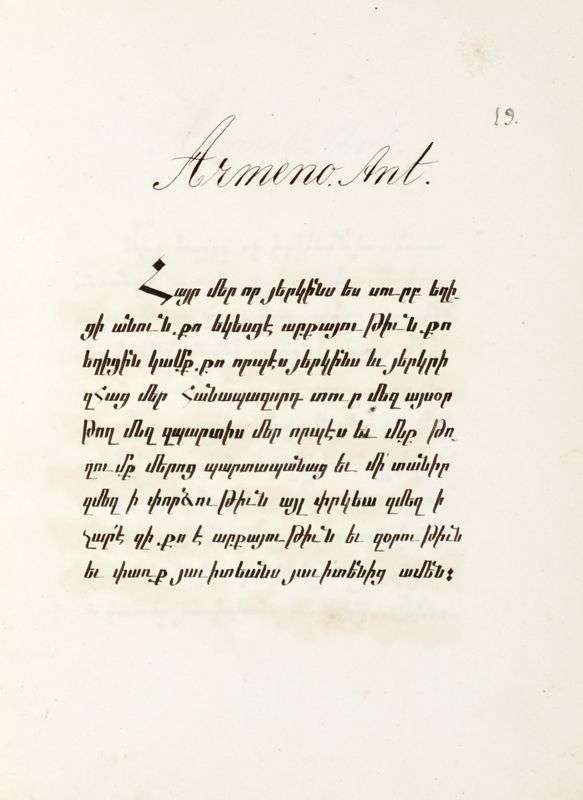 19.
Armeno. Ant.
Հայր մեր որ յերկինս ես սուրբ եղի_
ցի անուն.քո եկեսցէ արքայութիւն.քո
եղիցին կամք.քո որպէս յերկինս եւ յերկրի
զՀաց մեր Հանապազորդ տուր մեզ այսօր
թող մեզ զպարտիս մեր որպէս եւ մեք թո_
ղումք մերոց պարտապանաց եւ մի տանիր
զմեզ ի փորձութիւն այլ փրկեա զմեզ ի
չարէ զի.քո է արքայութիւն եւ զօրութիւն
եւ փառք յաւիտեանս յաւիտենից ամեն: